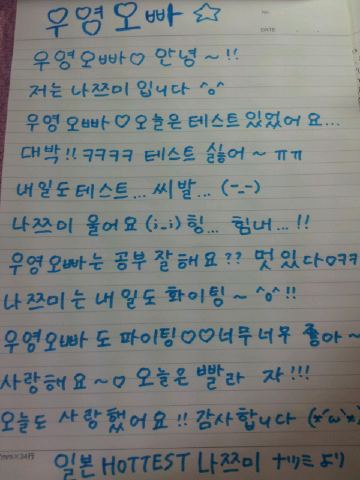 우영오빠 ☆
No.
DATE
우영오빠♡ 안녕~!!
저는 나쯔미 입니다 ^o^
우영오빠♡오늘은 테스트 있었어요...
대박!! ㅋㅋㅋㅋ 테스트 싫어~ ㅠㅠ
내일도 테스트... 씨발... (-_-)
나쯔미 울어요 (i_i) 힝... 힘내...!!
우영오빠는 공부 잘해요?? 멋있다ㅇㅋㅋ
나쯔미는 내일도 화이팅~ ^o^!!
우영오빠도 파이팅♡♡너무너무 좋아~
사랑해요~♡ 오늘은 빨라 자!!!
오늘도 사랑했어요!! 감사합니다 (x´ω`x)
7mm×24行
일본 HOTTEST 나쯔미 ナツミより